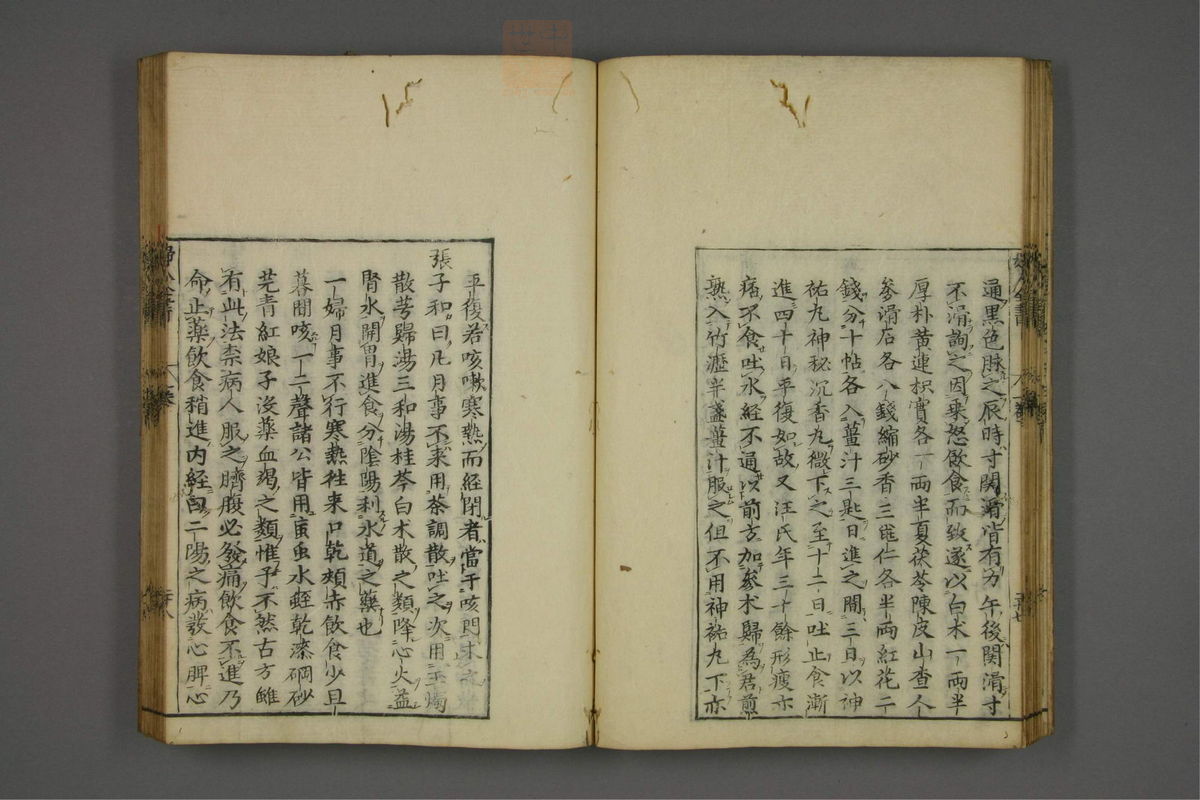 通黒色脉之辰時寸関濇皆有力午後関滑寸
不滑詢之因乗怒飲食而致遂以白朮一両半
厚朴黄連枳實各一両半夏茯苓陳皮山査人
參滑石各八錢縮砂香附桃仁各半両紅花二
錢分十帖各入薑汁三匙日進之間三日以神
祐丸神秘沉香丸微下之至十二日吐止食漸
進四十日平復如故又汪氏年三十餘形瘦亦
痞不食吐水經不通以前方加參朮歸為君煎
熟入竹瀝半盞薑汁服之但不用神祐丸下亦
平復若咳嗽寒熱而經閉者當于咳門求
張子和曰凡月事不来用茶調散吐之次用玉燭
散芎歸湯三和湯桂苓白朮散之類降心火益
腎水開胃進食分陰陽利水道之藥也
一婦月事不行寒熱徃来口乾頰赤飲食少且
暮間咳一二聲諸公皆用䖟虫水蛭乾漆硇砂
芫青紅娘子没藥血竭之類惟予不然古方雖
有此法柰病人服之臍腹必發痛飲食不進乃
命止藥飲食稍進内経曰二陽之病發心脾心